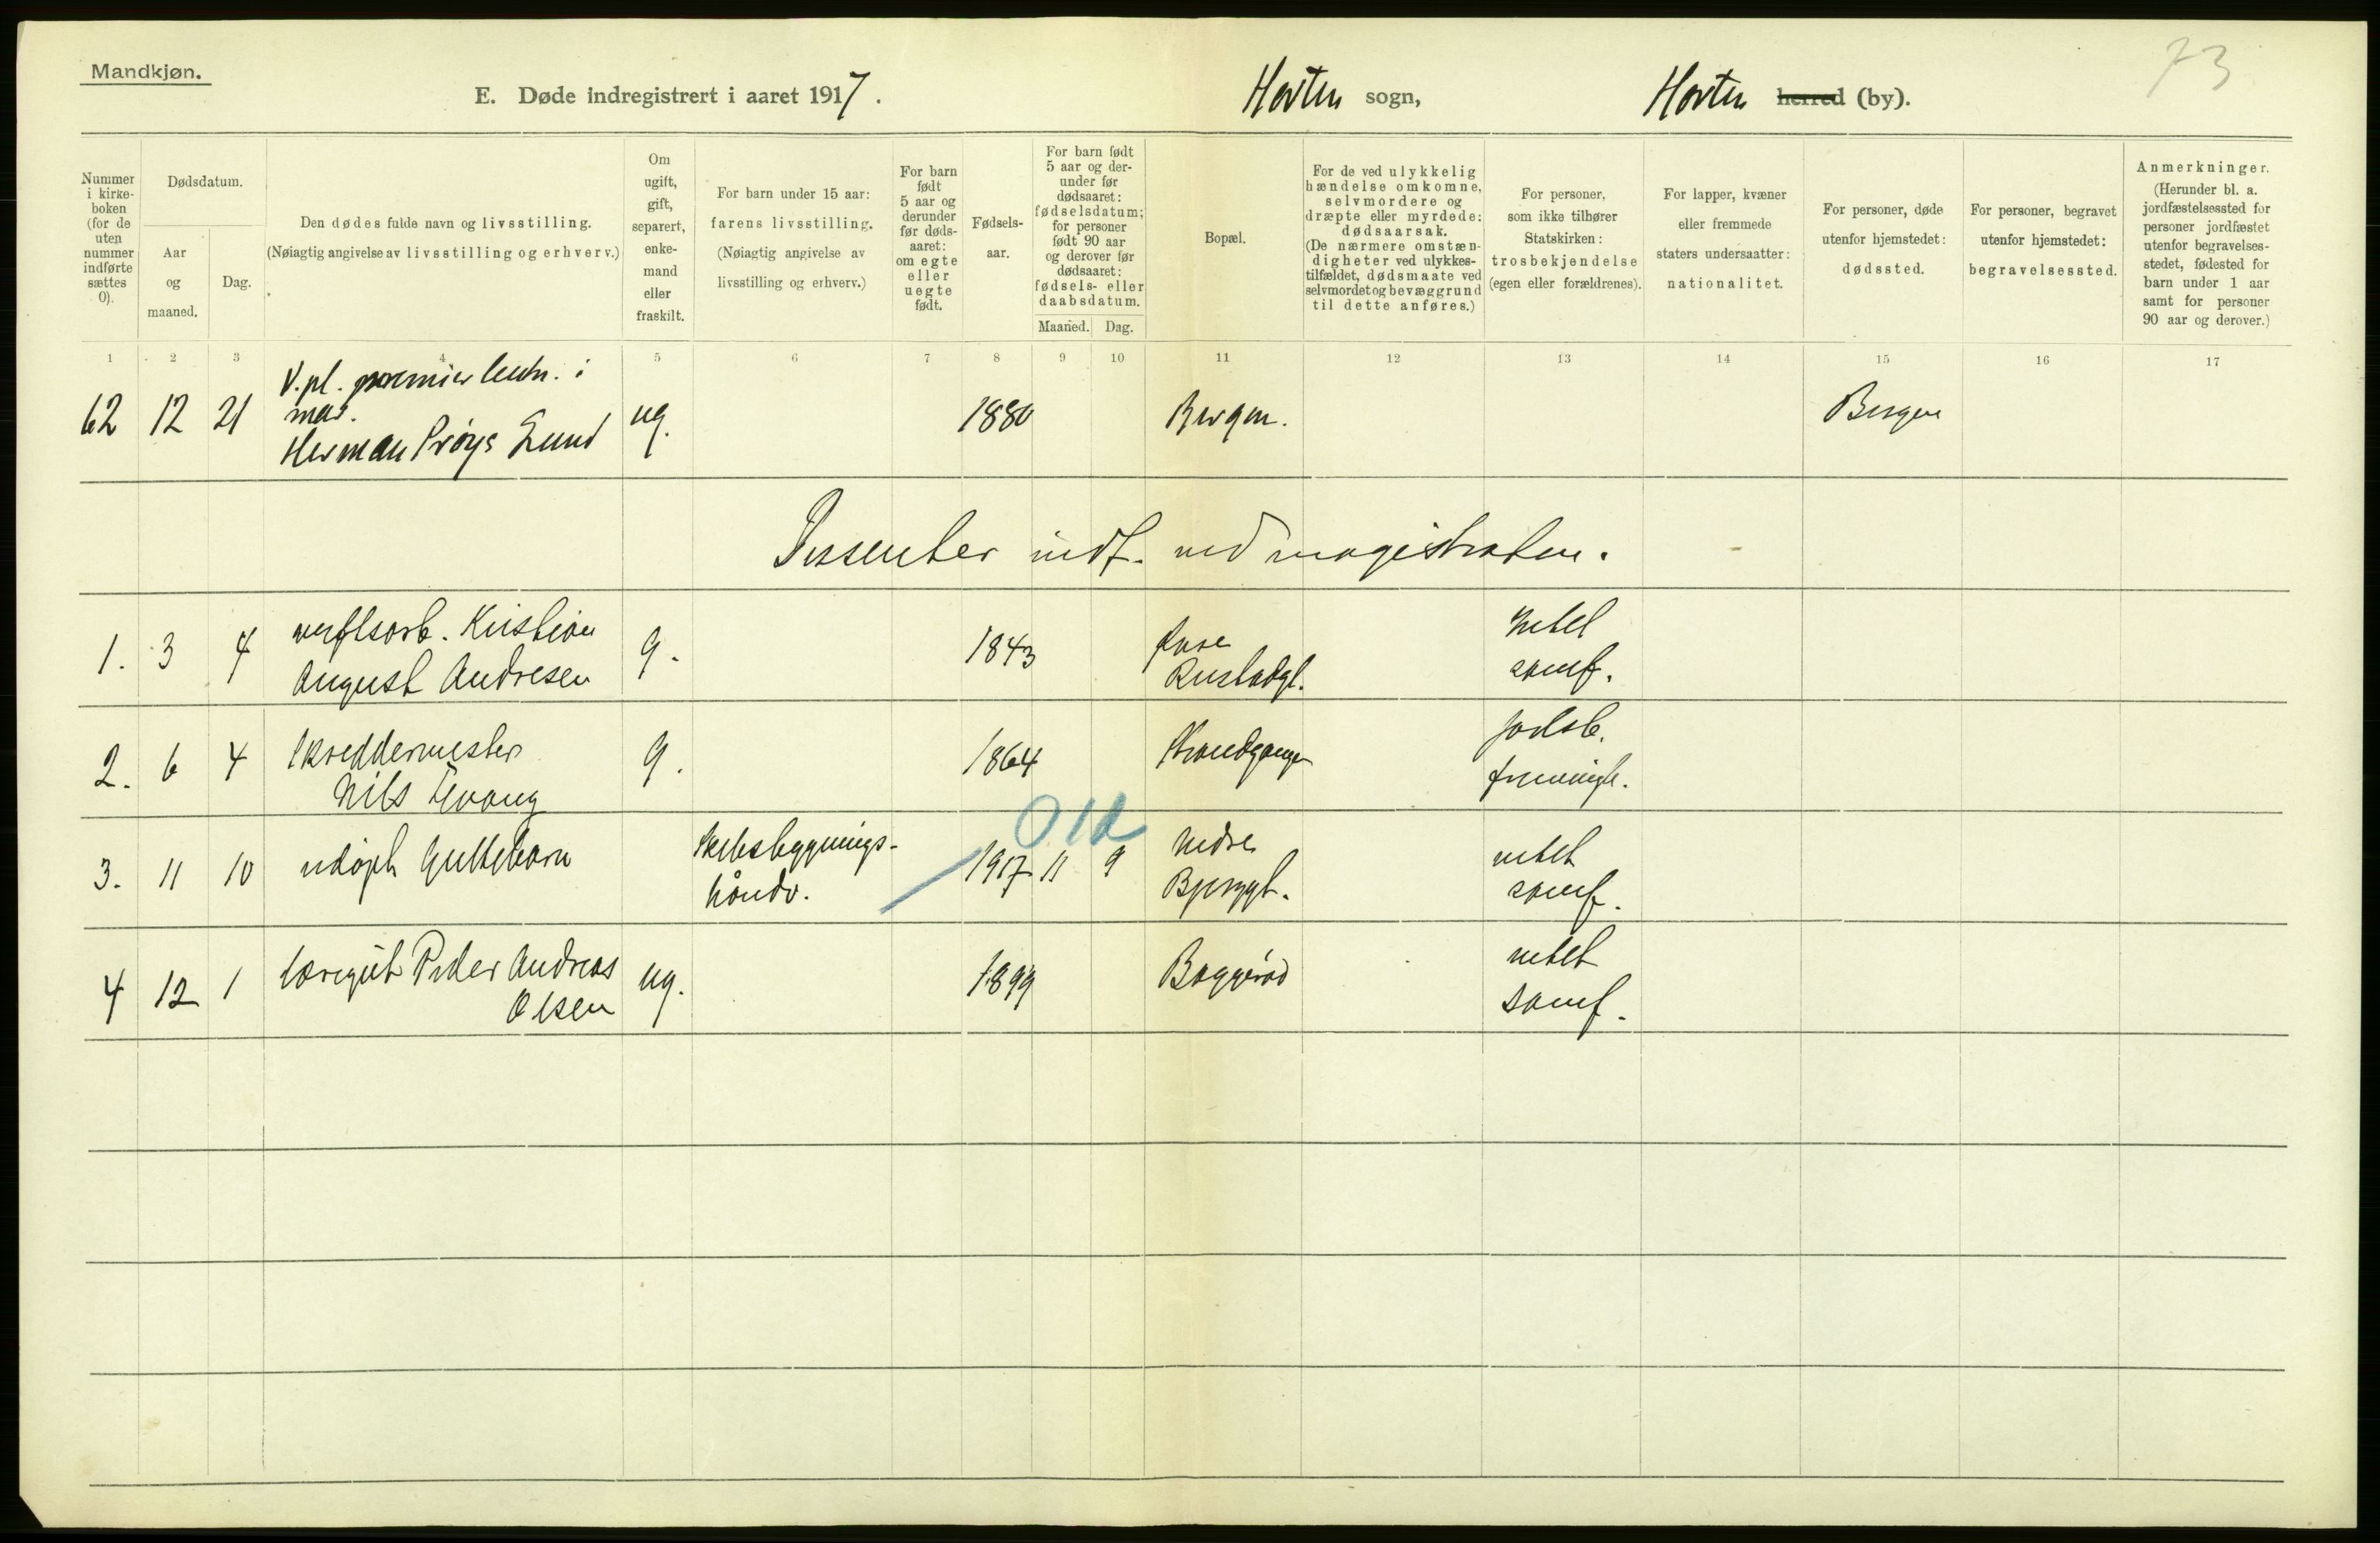 Mandkjøn.
73
E. Døde indregistrert i aaret 1917. Horten sogn, Horten herred (by).
Nummer i kirke-boken (for de uten nummer indførte sættes 0).
Dødsdatum.
Aar og maaned.
Dag.
Den dødes fulde navn og livsstilling.
(Nøiagtig angivelse av livsstilling og erhverv.)
Om ugift, gift, separert, enke-mand eller fraskilt.
For barn under 15 aar:
farens livsstilling.
(Nøiagtig angivelse av livsstilling og erhverv.)
For barn født 5 aar og derunder før døds-aaret: om egte eller uegte født.
Fødsels-aar.
For barn født 5 aar og der-under før dødsaaret: fødselsdatum; for personer født 90 aar og derover før dødsaaret: fødsels- eller daabsdatum.
Maaned. Dag.
Bopæl.
For de ved ulykkelig hændelse omkomne, selvmordere og dræpte eller myrdede: dødsaarsak.
(De nærmere omstæn-digheter ved ulykkes-tilfældet, dødsmaate ved selvmordet og bevæggrund til dette anføres.)
For personer, som ikke tilhører Statskirken: trosbekjendelse (egen eller forældrenes).
For lapper, kvæner eller fremmede staters undersaatter: nationalitet.
For personer, døde utenfor hjemstedet: dødssted.
For personer, begravet utenfor hjemstedet: begravelsessted.
Anmerkninger.
(Herunder bl. a. jordfæstelsessted for personer jordfæstet utenfor begravelses-stedet, fødested for barn under 1 aar samt for personer 90 aar og derover.)
1 2 3 4 5 6 7 8 9 10 11 12 13 14 15 16 17
V. pl. premierleutn. i
mar.
62 12 21 Herman Prøys Lund ug. 1880 Bergen. Bergen
Dissenter indf. ved magistraten.
1. 3 4 verftsarb. Kristian August Andresen g. 1843 Rustadgt. metod. samf.
2. 6 4 Skreddermester Nils g. 1864 Strandgangen
012
3. 11 10 udøpt Guttebarn Skibsbyggnings-håndv. 1917 11 9 Nedre Bjerggt. metod. samf.
4 12 1 Læregut Peder Andreas Olsen ug. 1899 Baggerød metod. samf.